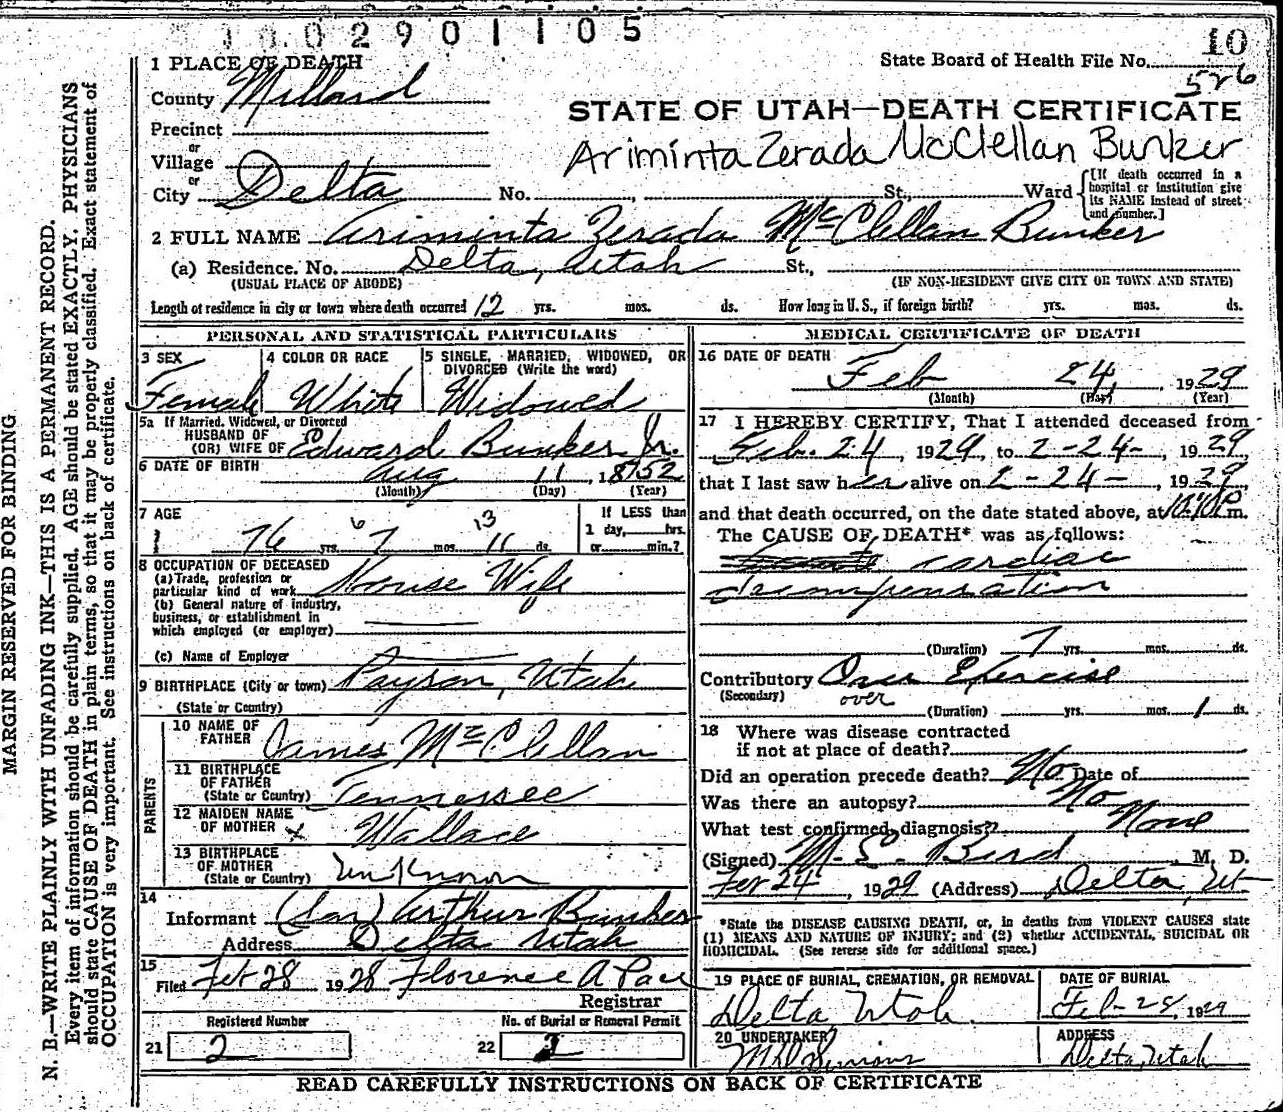 1 0 0 2 9 0 1 1 0 5
10
State Board of Health File No. 526
1 PLACE OF DEATH
County Millard
STATE OF UTAH—DEATH CERTIFICATE
Ariminta Zerada McClellan Bunker
Precinct
or
Village
or
City Delta No. , St., Ward
[If death occurred in a
hospital or institution give
its NAME instead of street
and number.]
2 FULL NAME Ariminta Zerada McClellan Bunker
(a) Residence. No. Delta, Utah St.,
(USUAL PLACE OF ABODE) (IF NON-RESIDENT GIVE CITY OR TOWN AND STATE)
Length of residence in city or town where death occurred 12 yrs. mos. ds. How long in U. S., if foreign birth? yrs. mos. ds.
PERSONAL AND STATISTICAL PARTICULARS
3 SEX
Female
4 COLOR OR RACE
White
5 SINGLE, MARRIED, WIDOWED, OR
DIVORCED (Write the word)
Widowed
5a If Married, Widowed, or Divorced
HUSBAND OF
(OR) WIFE OF Edward Bunker Jr.
6 DATE OF BIRTH Aug 11, 1852
(Month) (Day) (Year)
7 AGE
76 yrs. 6 7 mos. 13 11 ds.
If LESS than
1 day, hrs.
or min.?
8 OCCUPATION OF DECEASED
(a) Trade, profession or
particular kind of work House Wife
(b) General nature of industry,
business, or establishment in
which employed (or employer)
(c) Name of Employer
9 BIRTHPLACE (City or town) Payson, Utah
(State or Country)
PARENTS
10 NAME OF
FATHER James McClellan
11 BIRTHPLACE
OF FATHER
(State or Country) Tennessee
12 MAIDEN NAME
OF MOTHER x Wallace
13 BIRTHPLACE
OF MOTHER
(State or Country) Unknown
14
Informant (Son) Arthur Bunker
Address Delta Utah
15
Filed Feb 28 1928 Florence A Pace
Registrar
Registered Number No. of Burial or Removal Permit
21 2 22 2
MEDICAL CERTIFICATE OF DEATH
16 DATE OF DEATH
Feb 24, , 1929
(Month) (Day) (Year)
17 I HEREBY CERTIFY, That I attended deceased from
Feb. 24 , 1929, to 2-24- , 1929,
that I last saw her alive on 2-24- , 1929,
and that death occurred, on the date stated above, at 10:10 P m.
The CAUSE OF DEATH* was as follows:
cardiac
decompensation
(Duration) 7 yrs. mos. ds.
Contributory Over Exercise
(Secondary) over
(Duration) yrs. mos. 1 ds.
18 Where was disease contracted
if not at place of death?
Did an operation precede death? No Date of
Was there an autopsy? No
What test confirmed diagnosis? None
(Signed) M. E. Bird , M. D.
Feb 24 , 1929 (Address) Delta, Ut
*State the DISEASE CAUSING DEATH, or, in deaths from VIOLENT CAUSES state
(1) MEANS AND NATURE OF INJURY; and (2) whether ACCIDENTAL, SUICIDAL OR
HOMICIDAL. (See reverse side for additional space.)
19 PLACE OF BURIAL, CREMATION, OR REMOVAL
Delta Utah.
DATE OF BURIAL
Feb-28, 1929
20 UNDERTAKER
ADDRESS
Delta, Utah
READ CAREFULLY INSTRUCTIONS ON BACK OF CERTIFICATE
MARGIN RESERVED FOR BINDING
N. B.—WRITE PLAINLY WITH UNFADING INK—THIS IS A PERMANENT RECORD.
Every item of information should be carefully supplied. AGE should be stated EXACTLY. PHYSICIANS
should state CAUSE OF DEATH in plain terms, so that it may be properly classified. Exact statement of
OCCUPATION is very important. See instructions on back of certificate.